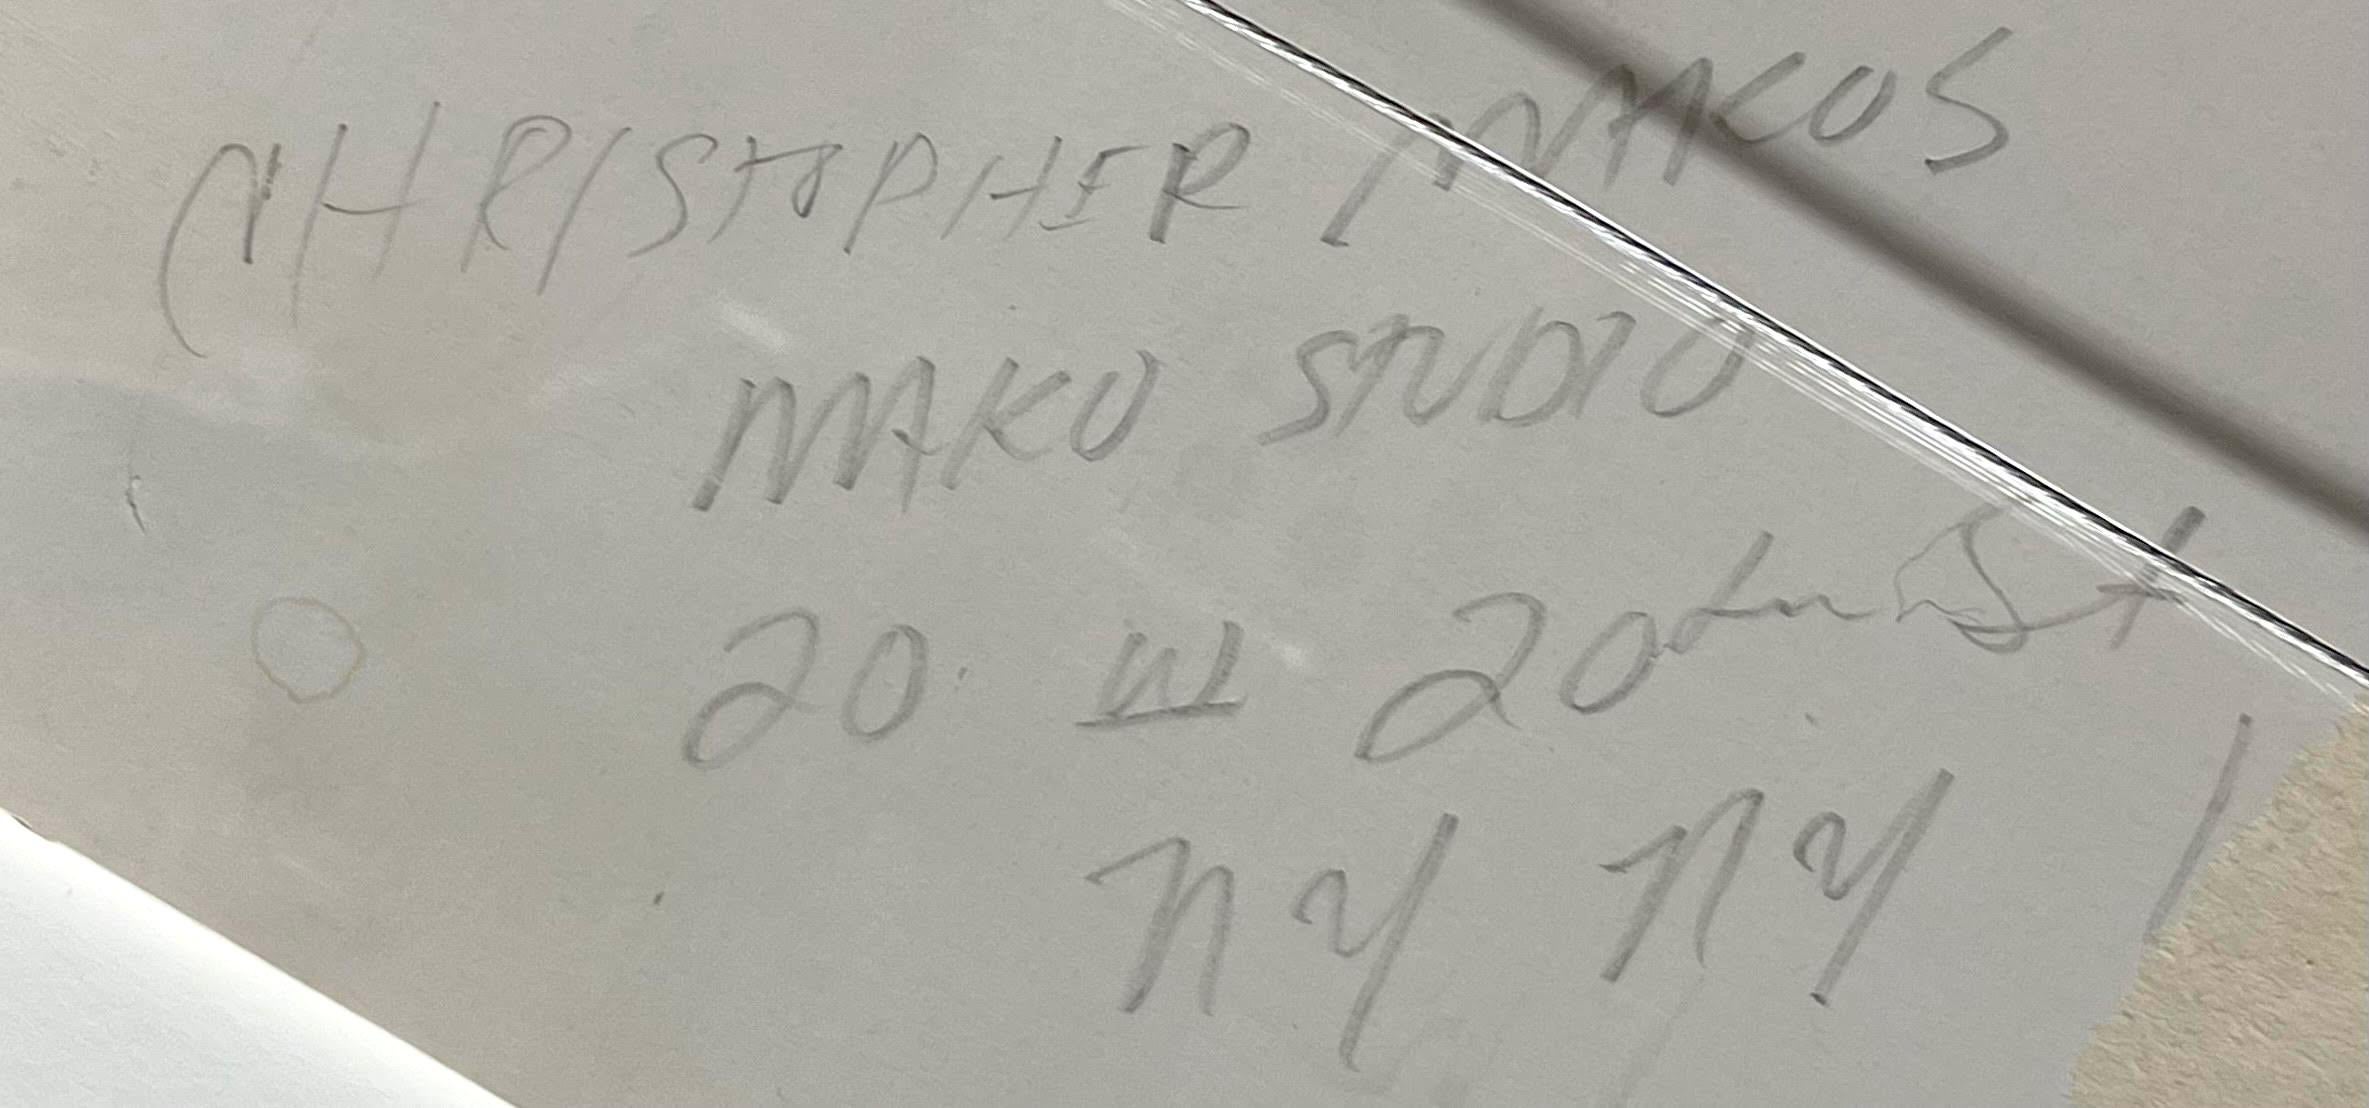 CHRISTOPHER MAKOS
MAKO STUDIO
20 W 20th St
NY NY